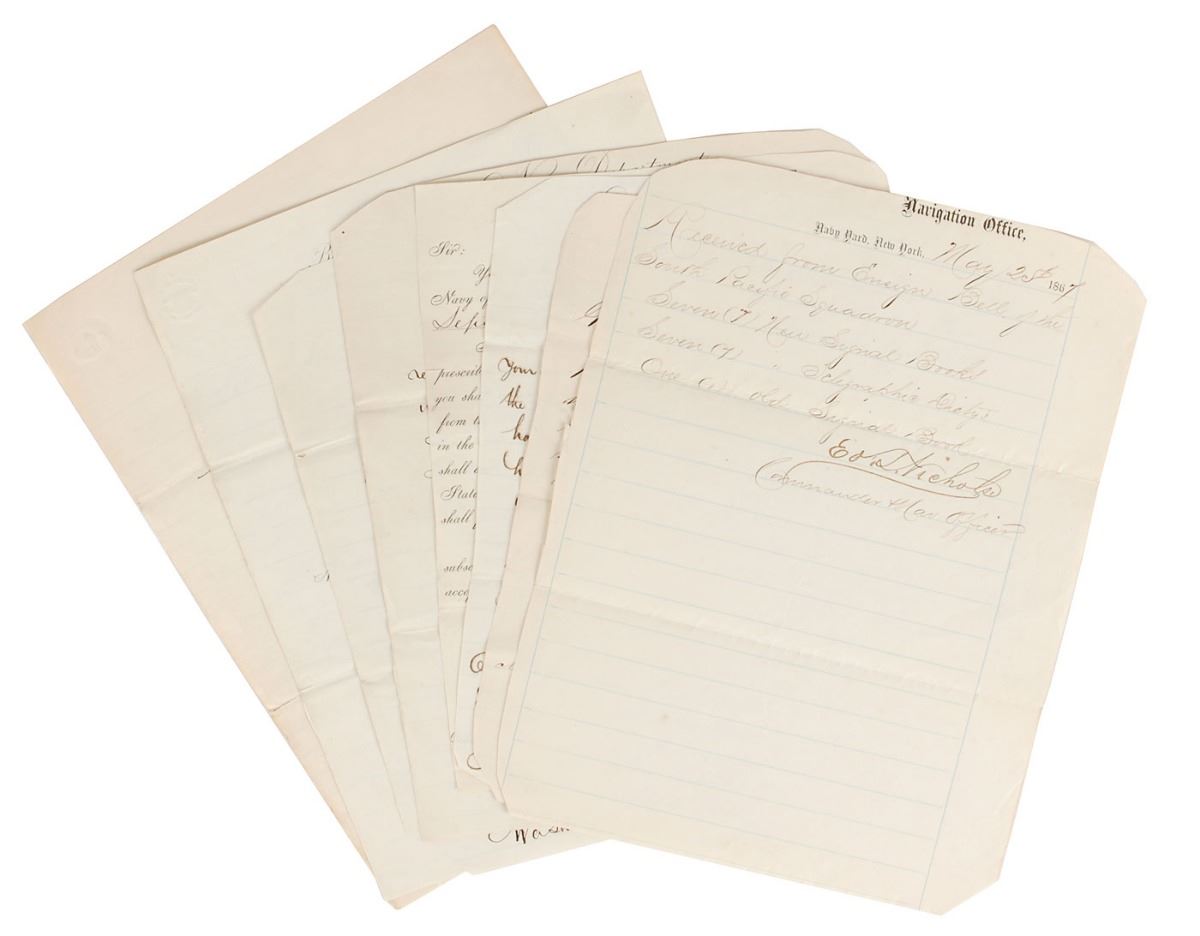 Navigation Office,
Navy Yard, New York, May 25th 1867
Received from Ensign Bell of the
South Pacific Squadron
Seven (7) New Signal Books
Seven (7) " Telegraphic Dicty's
One (1) old Signal Book
Ed T Nichols
Commander & Nav Officer
Department
Sir:
Navy of
prescrib
you sha
from t
in the
shall
State
shall
subsc
acce
Your
the
ho
Wash